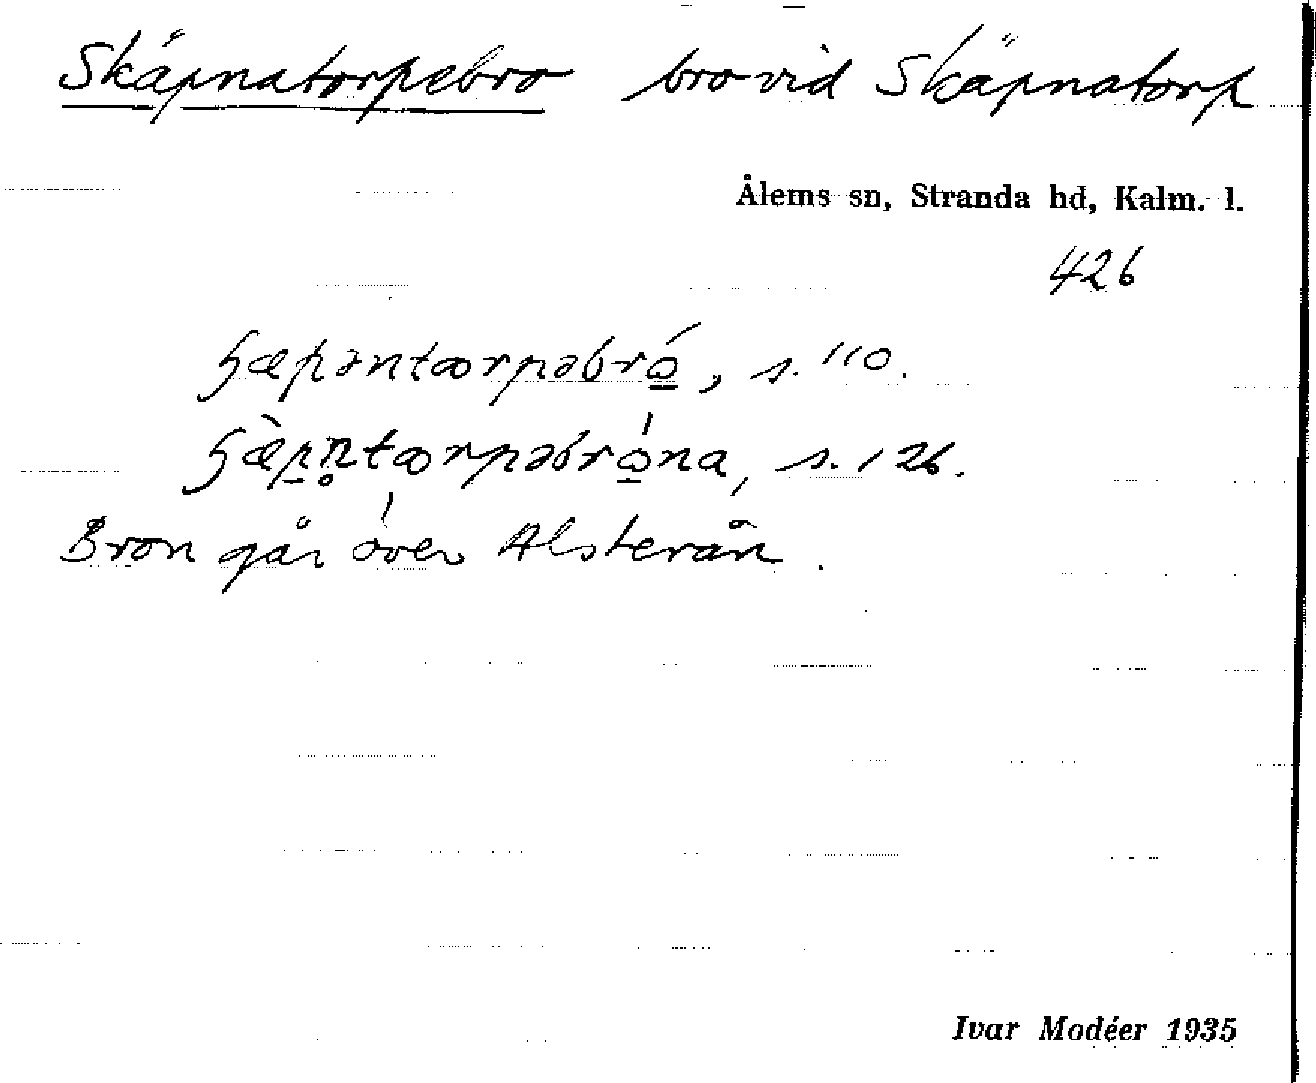 Skäpnatorpebro bro vid Skäpnatorp
Ålems sn, Stranda hd, Kalm. l.
426
s. 110.
s. 126.
Bron går över Alsterån.
Ivar Modéer 1935